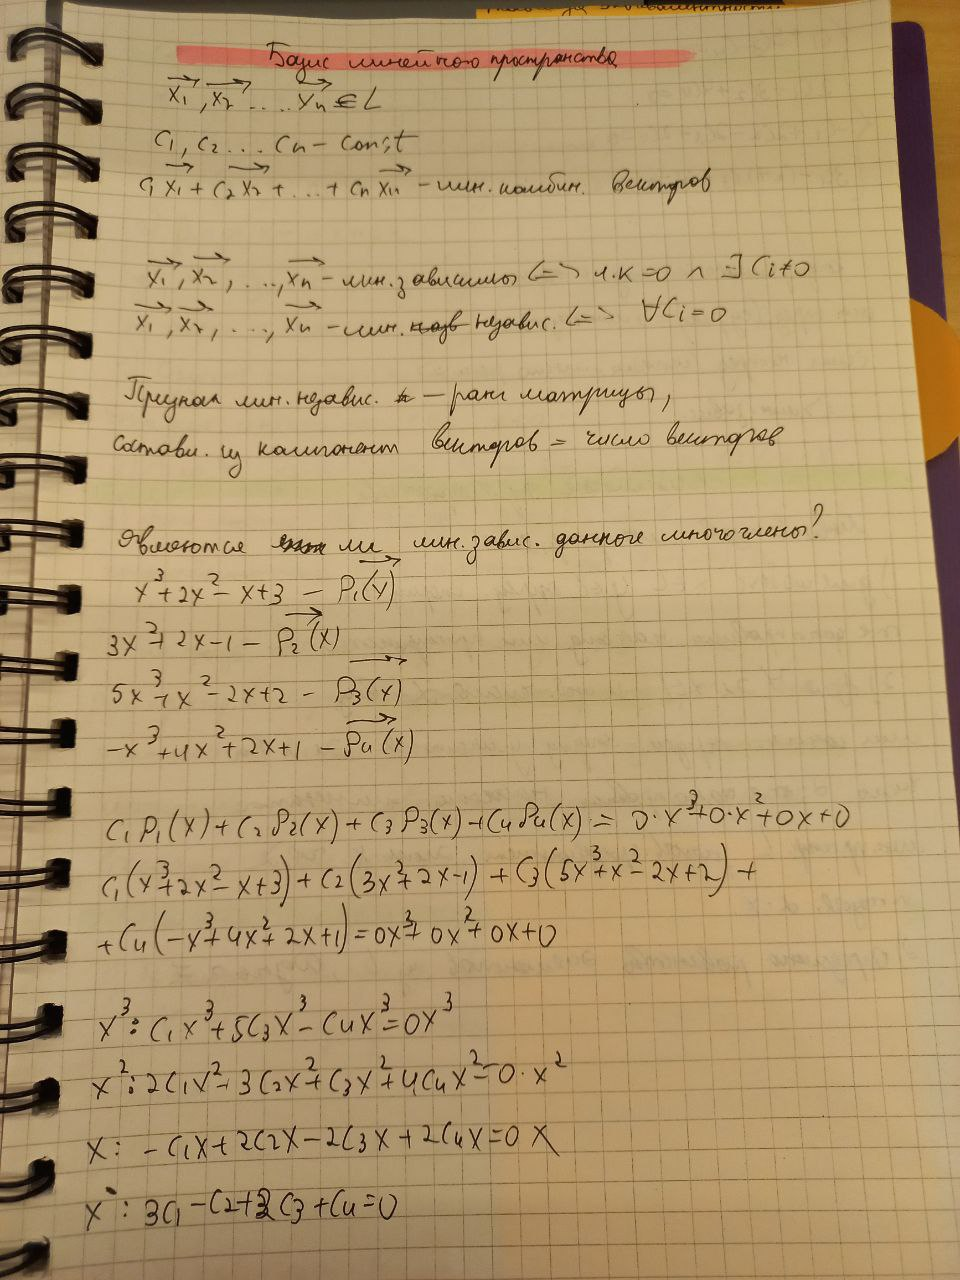 Базис линейного пространства
x₁, x₂ .... xₙ ∈ L
C₁, C₂ ... Cₙ – const
C₁x₁ + C₂x₂ + ... + Cₙxₙ – лин. комбин. векторов
x₁, x₂, ..., xₙ – лин. зависимы <=> л.к = 0 ∧ ∃Cᵢ≠0
x₁, x₂, ..., xₙ – лин. независ. <=> ∀Cᵢ=0
Признак лин. независ. – ранг матрицы,
составл. из компонент векторов = число векторов
Являются ли лин. завис. данные многочлены?
x³+2x²-x+3 – P₁(x)
3x²+2x-1 – P₂(x)
5x³+x²-2x+2 – P₃(x)
-x³+4x²+2x+1 – P₄(x)
C₁P₁(x)+C₂P₂(x)+C₃P₃(x)+C₄P₄(x) = 0·x³+0·x²+0x+0
C₁(x³+2x²-x+3)+C₂(3x²+2x-1)+C₃(5x³+x²-2x+2)+
+C₄(-x³+4x²+2x+1)=0x³+0x²+0x+0
x³: C₁x³+5C₃x³-C₄x³=0x³
x²: 2C₁x²+3C₂x²+C₃x²+4C₄x²=0·x²
x: -C₁x+2C₂x-2C₃x+2C₄x=0x
x⁰: 3C₁-C₂+2C₃+C₄=0